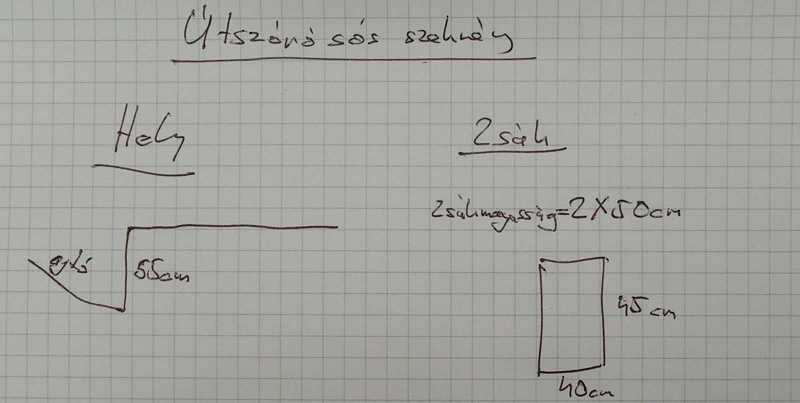 Útszóró sós szekrény
Hely
Zsák
Zsákmagasság=2X50cm
ajtó
55cm
45cm
40cm